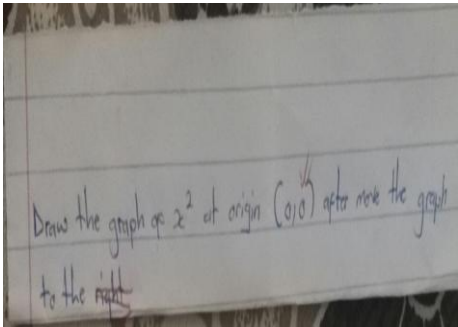 Draw the graph of x² at origin (0,0) after move the graph
to the right